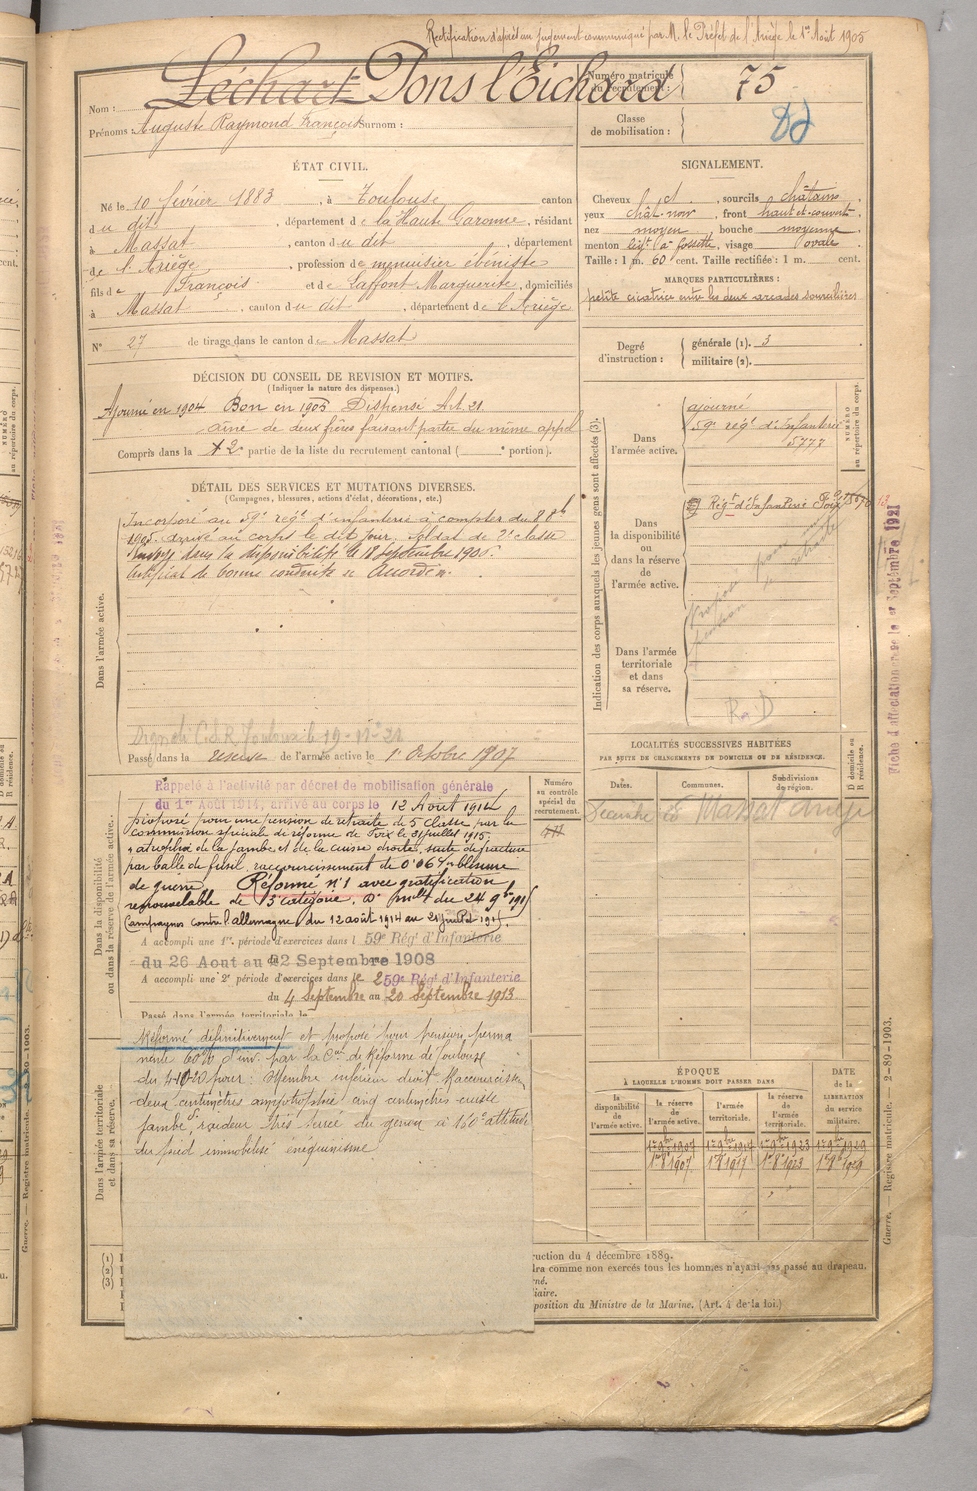 Rectification d'après un jugement communiqué par M. le Préfet de l'Ariège le 1er Août 1905
Nom : Léchart Pons l'Eichard
Numéro matricule du recrutement : 75
Prénoms : Auguste Raymond François Surnom :
Classe de mobilisation :
ÉTAT CIVIL.
Né le 10 février 1883, à Toulouse canton
du dit, département de la Haute Garonne, résidant
à Massat, canton du dit, département
de l'Ariège, profession de menuisier ébéniste
fils de François et de Laffont Marguerite, domiciliés
à Massat, canton du dit, département de l'Ariège
N° 27 de tirage dans le canton de Massat
SIGNALEMENT.
Cheveux ct, sourcils châtains,
yeux chât. noir, front haut et couvert
nez moyen, bouche moyenne
menton à fossette, visage ovale
Taille : 1 m. 60 cent. Taille rectifiée : 1 m. cent.
MARQUES PARTICULIÈRES :
petite cicatrice entre les deux arcades sourcilières
Degré d'instruction :
générale (1). 3
militaire (2).
DÉCISION DU CONSEIL DE REVISION ET MOTIFS.
(Indiquer la nature des dispenses.)
Ajourné en 1904 Bon en 1905 Dispensé Art. 21
aîné de deux frères faisant partie du même appel
Compris dans la 2e partie de la liste du recrutement cantonal ( e portion).
DÉTAIL DES SERVICES ET MUTATIONS DIVERSES.
(Campagnes, blessures, actions d'éclat, décorations, etc.)
Dans l'armée active.
Incorporé au 59e rég. d'infanterie à compter du 8 8bre
1905. arrivé au corps le dit jour, soldat de 2e classe
dans la disponibilité le 18 septembre 1906.
Certificat de bonne conduite Accordé.
Passé dans la réserve de l'armée active le 1er Octobre 1907
Indication des corps auxquels les jeunes gens sont affectés (3).
Dans l'armée active.
ajourné
59e rég. d'Infanterie
5777
NUMÉRO au répertoire du corps.
Dans la disponibilité ou dans la réserve de l'armée active.
Régt d'Infanterie Foix
Proposé pour une pension de retraite
Dans l'armée territoriale et dans sa réserve.
R. D
Fiche d'affectation le 1er Septembre 1921
LOCALITÉS SUCCESSIVES HABITÉES
PAR SUITE DE CHANGEMENTS DE DOMICILE OU DE RÉSIDENCE.
Dates. Communes. Subdivisions de région. D domicile ou R résidence.
Massat Ariège
Dans la disponibilité ou dans la réserve de l'armée active.
Numéro au contrôle spécial du recrutement.
Rappelé à l'activité par décret de mobilisation générale
du 1er Août 1914, arrivé au corps le 12 Août 1914
proposé pour une pension de retraite de 5 classe par la
commission spéciale de réforme de Foix le 31 juillet 1915.
atrophie de la jambe et de la cuisse droite, suite de fracture
par balle de fusil, raccourcissement de blessure
de guerre. Réformé n°1 avec gratification
renouvelable de 5 catégorie, du 24 9bre
Campagnes contre l'allemagne du 12 août 1914 au
A accompli une 1re période d'exercices dans l 59e Régt d'Infanterie
du 26 Aout au 22 Septembre 1908
A accompli une 2e période d'exercices dans le 259e Régt d'Infanterie
du 4 Septembre au 20 Septembre 1913
Passé dans l'armée territoriale le
Dans l'armée territoriale et dans sa réserve.
Réformé définitivement et proposé pour pension perma
nente 60% d'inv. par la Con de Réforme de Toulouse
du pour : Membre inférieur droit Raccourcissem
deux centimètres cinq centimètres cuisse
jambe, raideur très serrée du genou à 160° attitude
du pied immobilisé
ÉPOQUE
À LAQUELLE L'HOMME DOIT PASSER DANS
la disponibilité de l'armée active. la réserve de l'armée active. l'armée territoriale. la réserve de l'armée territoriale.
DATE de la LIBÉRATION du service militaire.
1er 9bre 1907 1er 9bre 1917 1er 9bre 1923 1er 9bre 1929
1er 8 1907 1er 8 1917 1er 8 1923 1er 8 1929
(1)
(2)
(3)
ruction du 4 décembre 1889.
dra comme non exercés tous les hommes n'ayant pas passé au drapeau.
né.
iaire.
position du Ministre de la Marine. (Art. 4 de la loi.)
Guerre. — Registre matricule. — 2-89-1903.